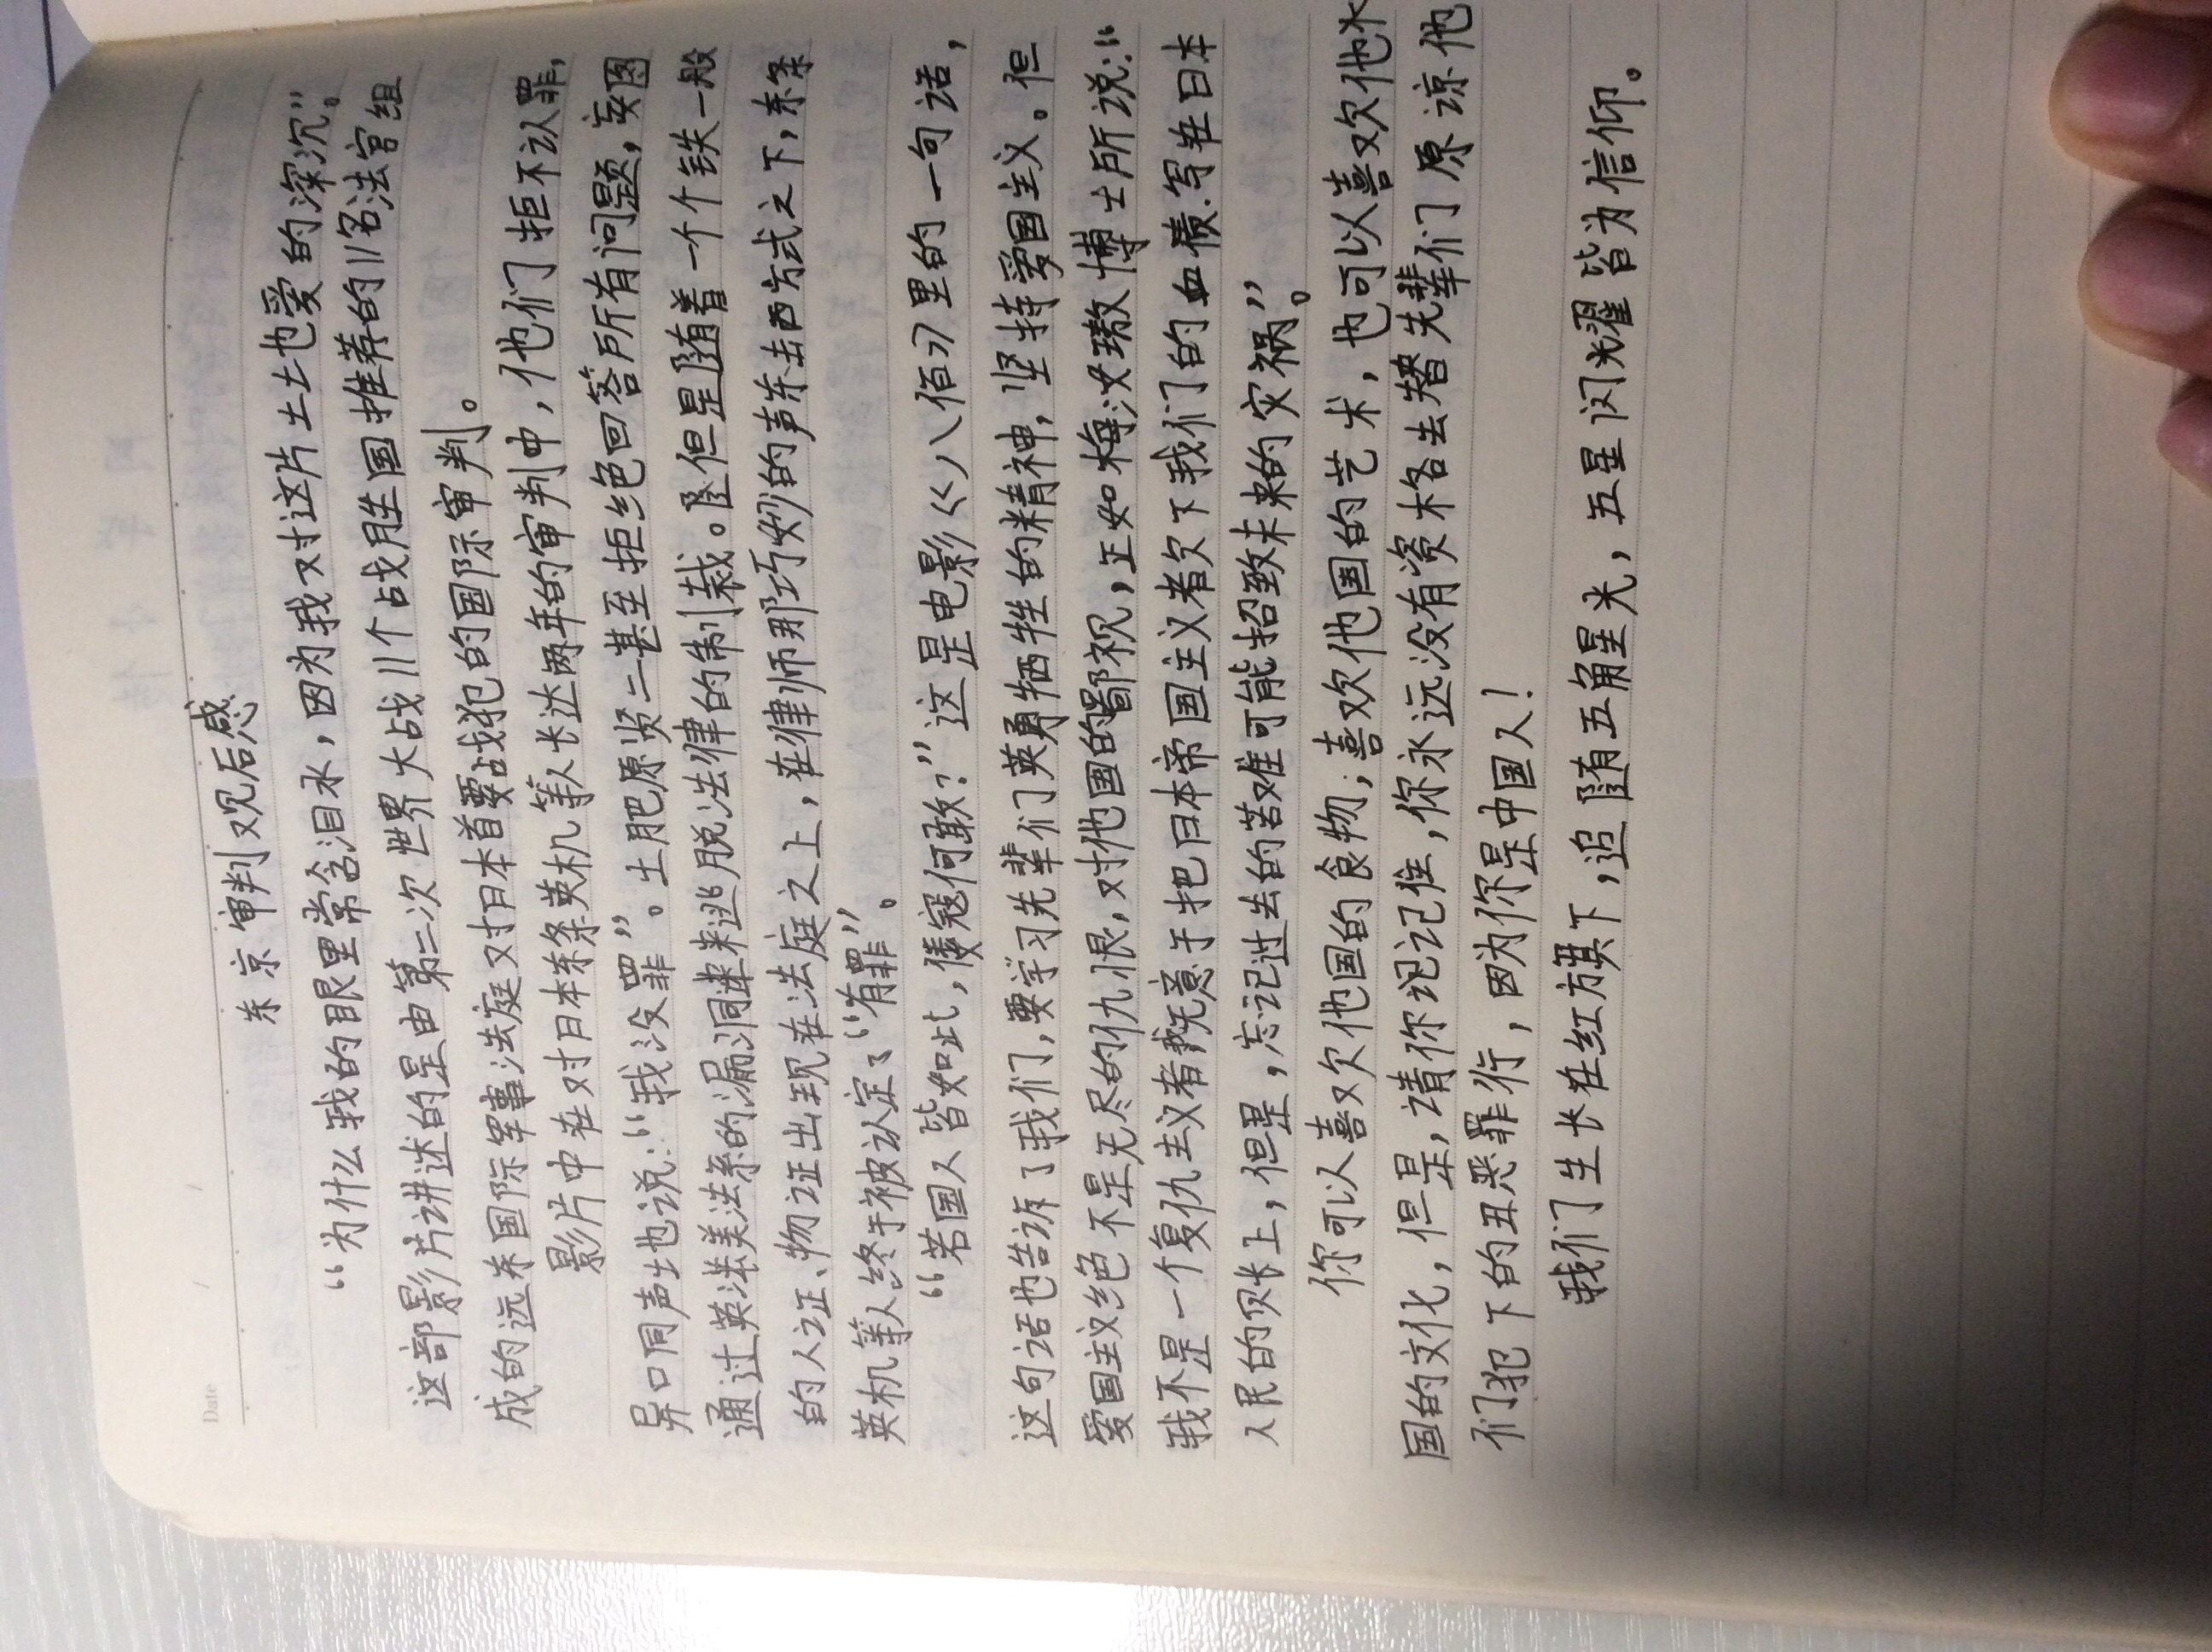 Date
东京审判观后感
“为什么我的眼里常含泪水，因为我对这片土地爱的深沉”。
这部影片讲述的是由第二次世界大战11个战胜国推荐的11名法官组
成的远东国际军事法庭对日本首要战犯的国际审判。
影片中在对日本东条英机等人长达两年的审判中，他们拒不认罪，
异口同声地说：“我没罪”。土肥原贤二甚至拒绝回答所有问题，妄图
通过英美法系的漏洞来逃脱法律的制裁。但是随着一个个铁一般
的人证、物证出现在法庭之上，在律师那巧妙的声东击西方式之下，东条
英机等人终于被认定了“有罪”。
“若国人皆如此，倭寇何敢？”这是电影《八佰》里的一句话，
这句话也告诉了我们，要学习先辈们英勇牺牲的精神，坚持爱国主义。但
爱国主义绝不是无尽的仇恨，对他国的鄙视，正如梅汝璈博士所说：“
我不是一个复仇主义者我无意于把日本帝国主义者欠下我们的血债写在日本
人民的账上，但是，忘记过去的苦难可能招致未来的灾祸”。
你可以喜欢他国的食物，喜欢他国的艺术，也可以喜欢他
国的文化，但是，请你记住，你永远没有资格去替先辈们原谅他
们犯下的丑恶罪行，因为你是中国人！
我们生长在红旗下，追随五角星光，五星闪耀皆为信仰。